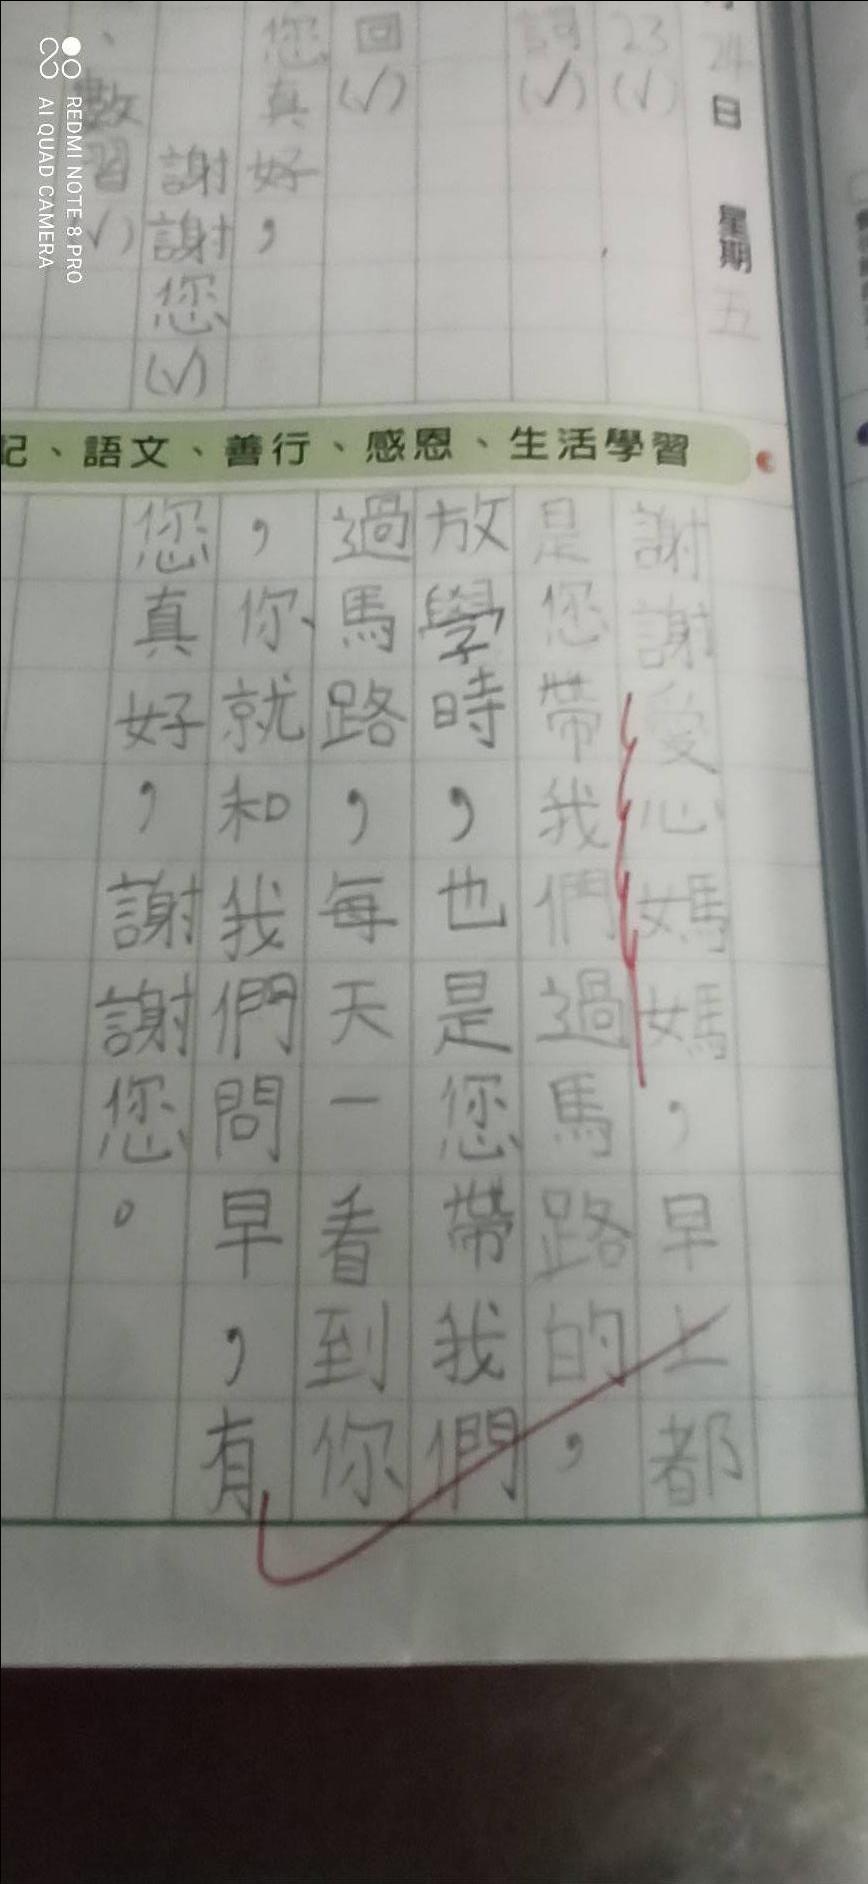 24日 星期五
23(√)
詞(√)
回(√)
您真好，
謝謝您(√)
、數習(√)
記、語文、善行、感恩、生活學習
謝謝愛心媽媽，早上都
是您帶我們過馬路的，
放學時，也是您帶我們
過馬路，每天一看到你
，你就和我們問早，有
您真好，謝謝您。
REDMI NOTE 8 PRO
AI QUAD CAMERA